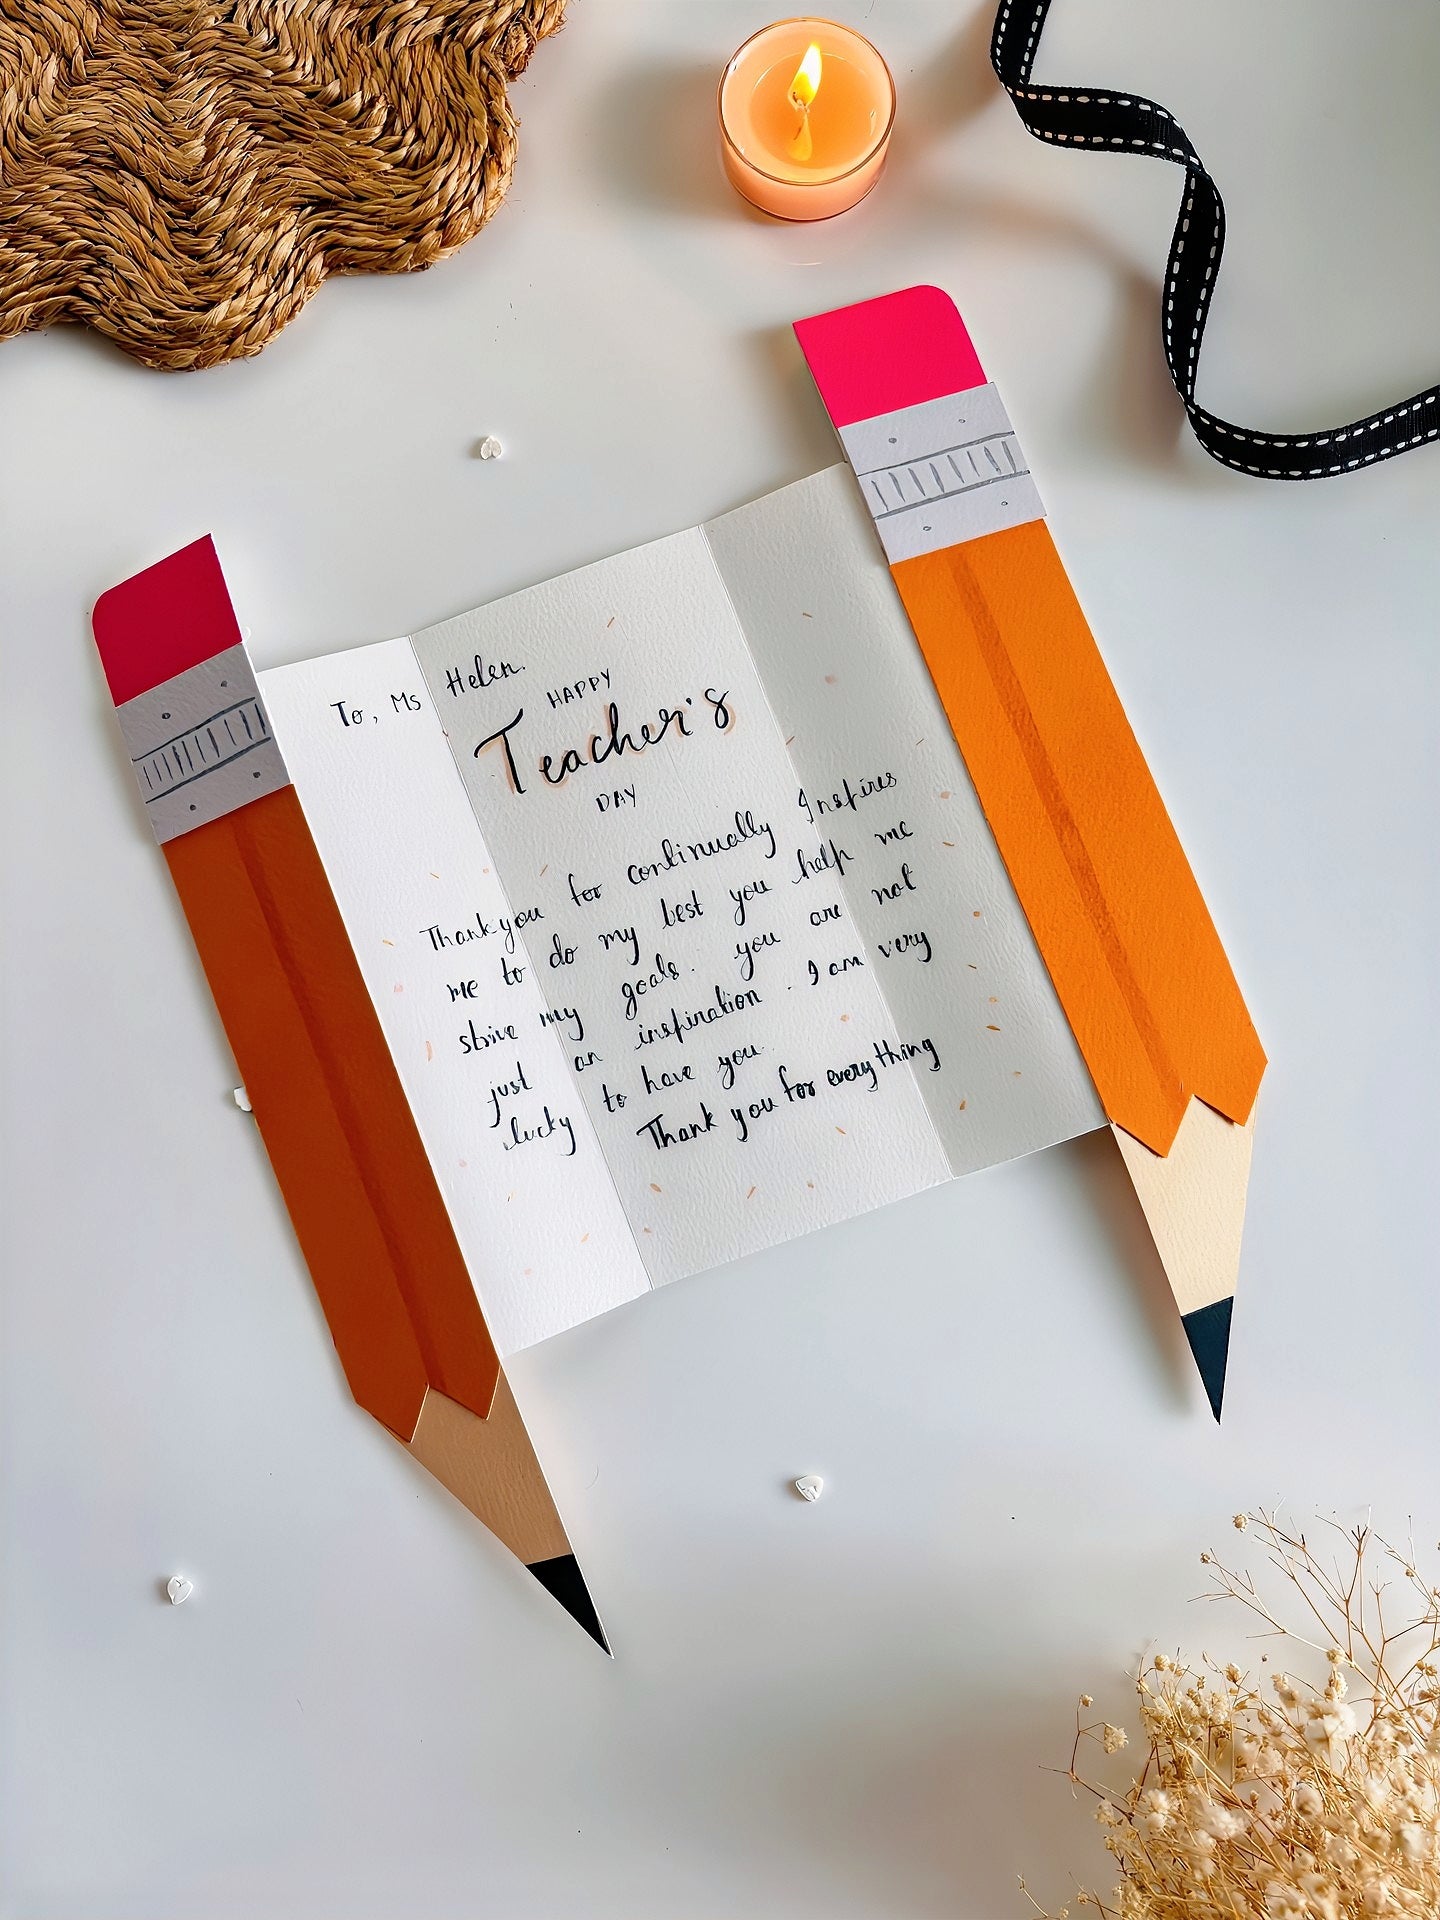 To, Ms Helen.
HAPPY
Teacher's
DAY
Thank you for continually Inspires
me to do my best you help me
strive my goals. you are not
just an inspiration. I am very
lucky to have you.
Thank you for everything